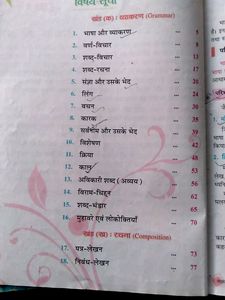 विषय सूची
खंड (क) : व्याकरण (Grammar)
1. भाषा और व्याकरण ... 5
2. वर्ण-विचार ... 8
3. शब्द-विचार ... 13
4. शब्द-रचना ... 17
5. संज्ञा और उसके भेद ... 20
6. लिंग ... 24
7. वचन ... 30
8. कारक ... 35
9. सर्वनाम और उसके भेद ... 39
10. विशेषण ... 44
11. क्रिया ... 48
12. काल ... 53
13. अविकारी शब्द (अव्यय) ... 56
14. विराम-चिह्न ... 62
15. शब्द-भंडार ... 65
16. मुहावरे एवं लोकोक्तियाँ ... 70
खंड (ख) : रचना (Composition)
17. पत्र-लेखन ... 73
18. निबंध-लेखन ... 77